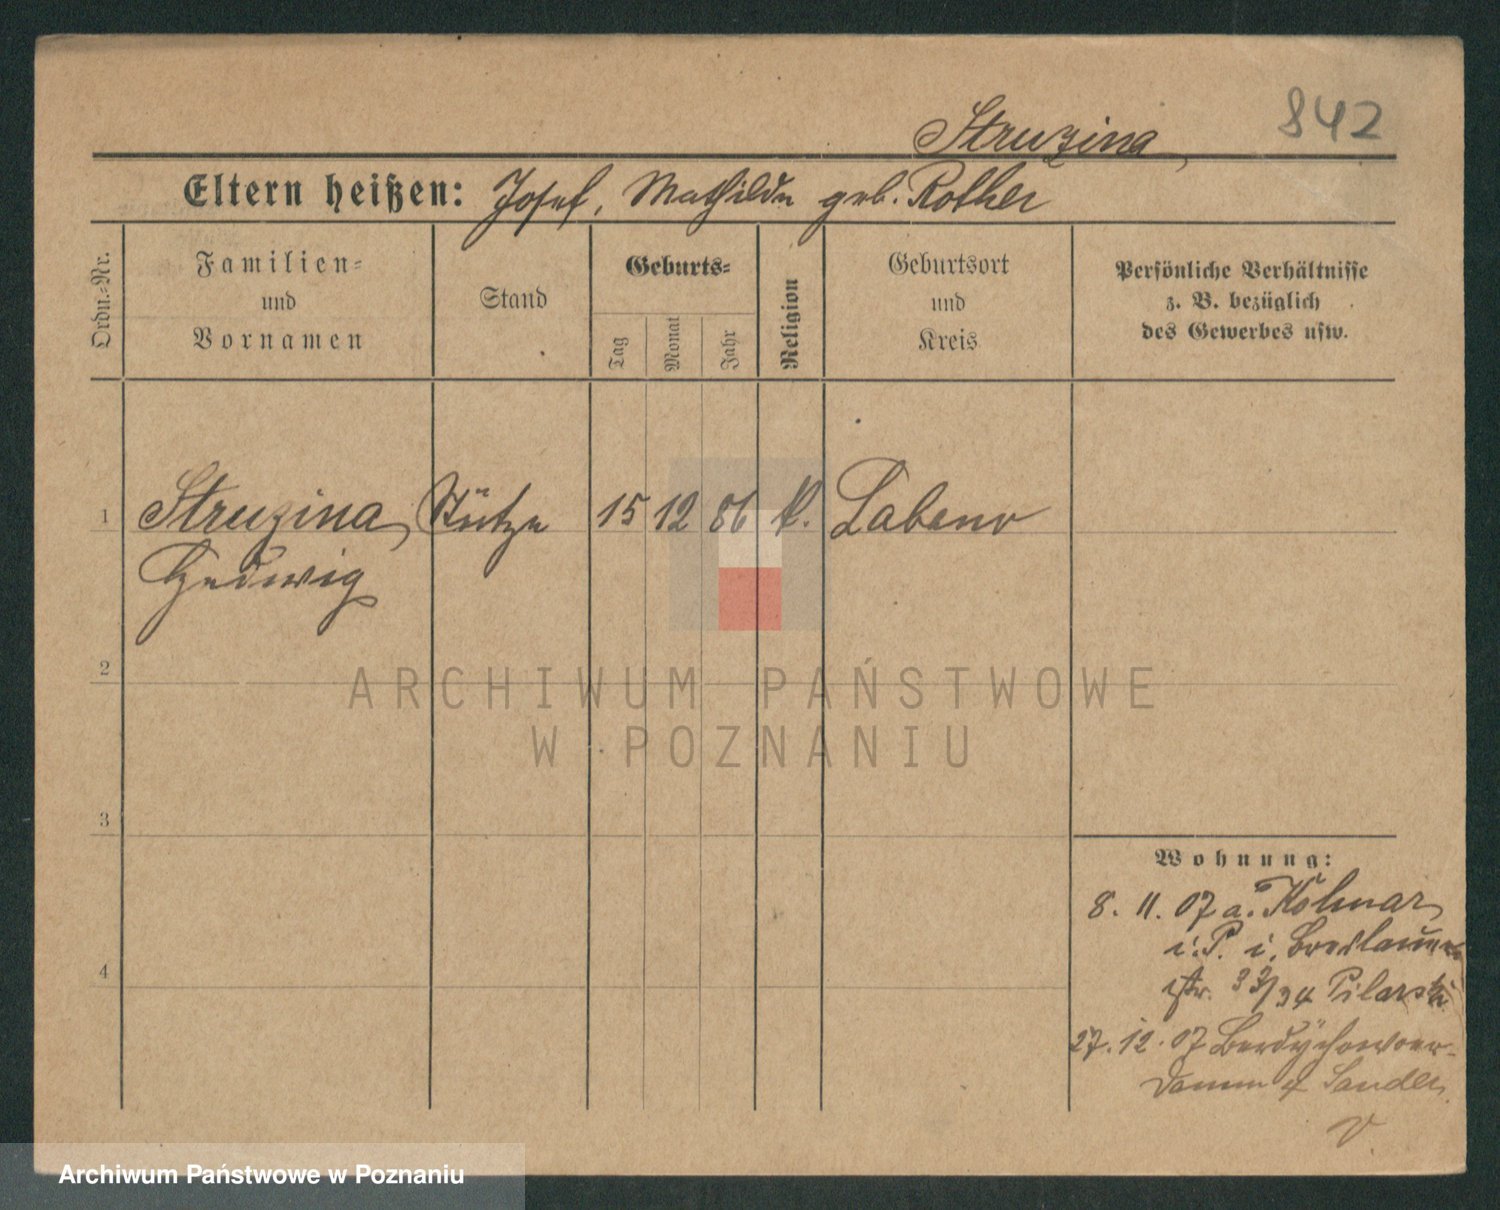 842
Struzina
Eltern heißen: Josef, Mathilde geb. Rother
Ordn.-Nr.
Familien-
und
Vornamen
Stand
Geburts-
Tag
Monat
Jahr
Religion
Geburtsort
und
Kreis
Persönliche Verhältnisse
z. B. bezüglich
des Gewerbes usw.
1 Struzina, Stütze 15 12 86 k. Labenr
Hedwig
2
3
4
Wohnung:
8. 11. 07 a. Kolmar
i. P. i. Breslauer
str. 33/34 Pilarski
27. 12. 07 Berdychowoer-
damm 4 Sander
V
ARCHIWUM PAŃSTWOWE
W POZNANIU
Archiwum Państwowe w Poznaniu